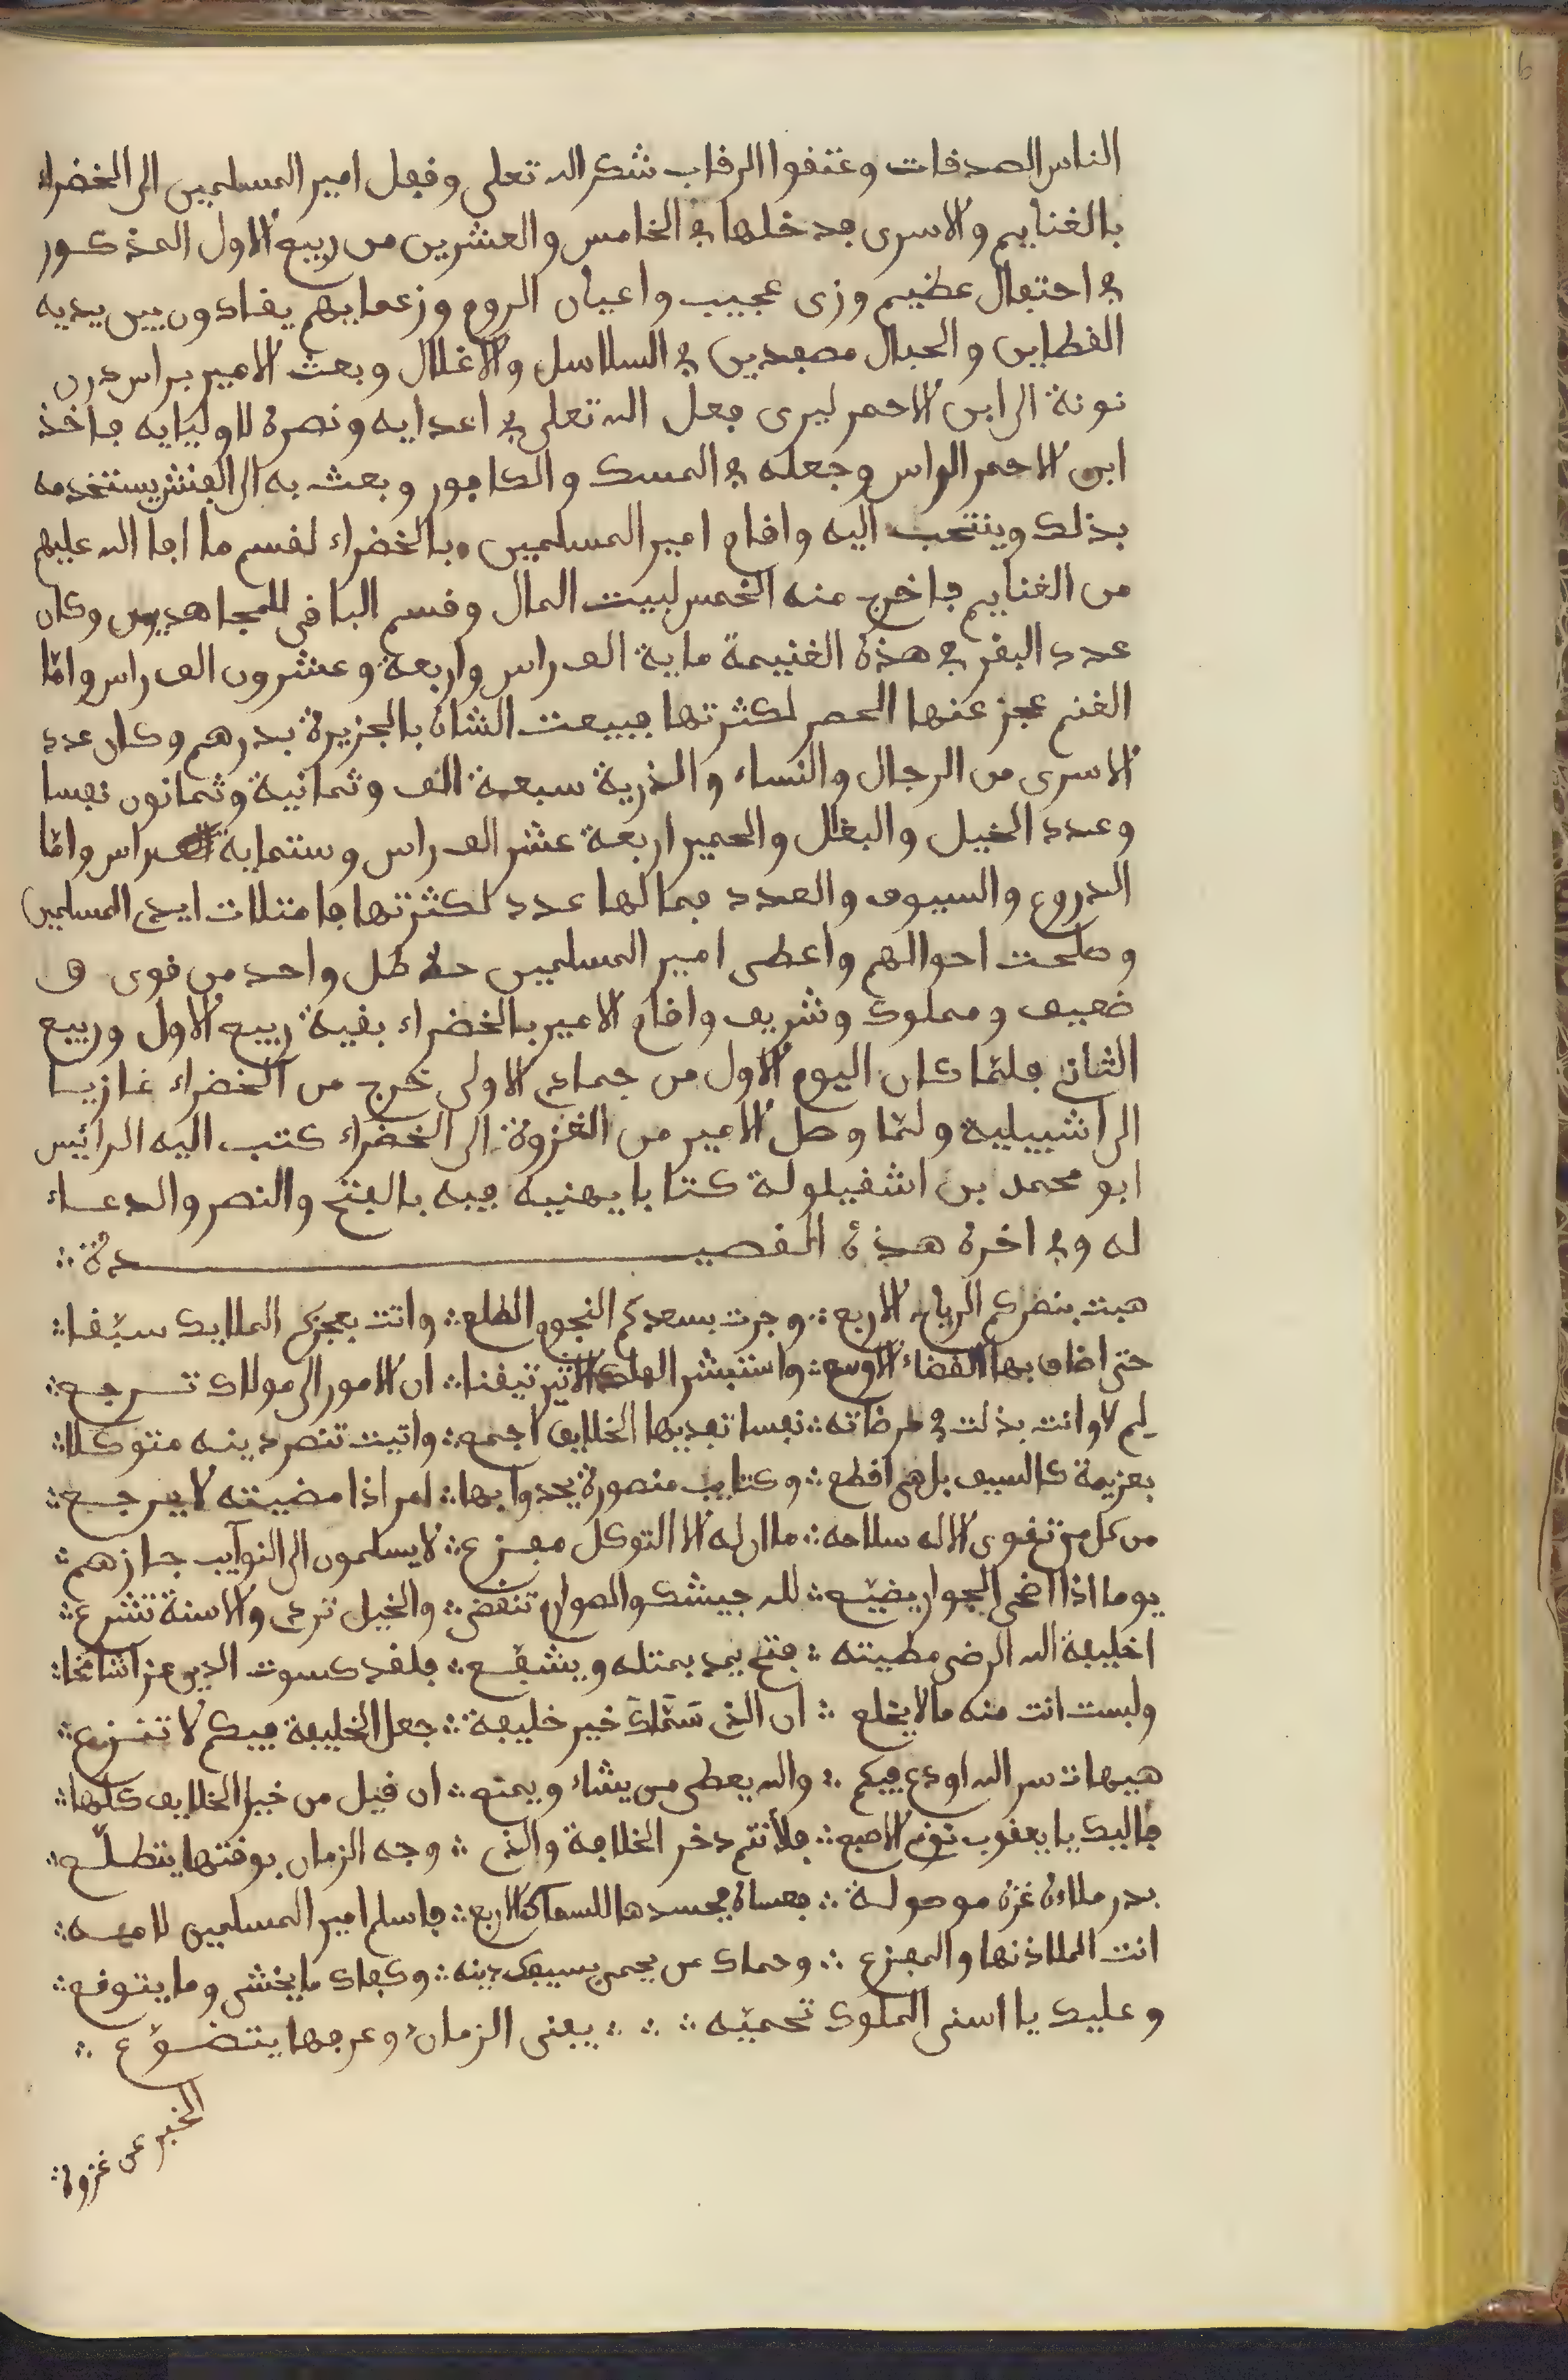 الناس الصدفات وعتقوا الرقاب شكر الله تعلى وقفل امير المسلمين الى الخضراء
بالغنايم والاسرى فدخلها في الخامس والعشرين من ربيع الاول المذكور
في احتفال عظيم وزى عجيب واعيان الروم وزعمايهم يقادون بين يديه
القطاين والحبال مصفدين في السلاسل والاغلال وبعث الامير براس درن
نونة الى ابن الاحمر ليرى فعل الله تعلى في اعدايه ونصره لاوليايه فاخذ
ابن الاحمر الراس وجعله في المسك والكافور وبعث به الى الفنش يستخدمه
بذلك وينتحب اليه واقام امير المسلمين بالخضراء لقسم ما افا الله عليهم
من الغنايم فاخرج منه الخمس لبيت المال وقسم الباقى للمجاهدين وكان
عدد البقر في هذه الغنيمة ماية الف راس واربعة وعشرون الف راس واما
الغنم عجز عنها الحصر لكثرتها فبيعت الشاة بالجزيرة بدرهم وكان عدد
الاسرى من الرجال والنساء والذرية سبعة الف وثمانية وثمانون نفسا
وعدد الخيل والبغال والحمير اربعة عشر الف راس وستماية راس واما
الدروع والسيوف والعدد فما لها عدد لكثرتها فامتلات ايدى المسلمين
وصلحت احوالهم واعطى امير المسلمين حلة كل واحد من قوى و
ضعيف ومملوك وشريف واقام الامير بالخضراء بقية ربيع الاول وربيع
الثانى فلما كان اليوم الاول من جمادى الاولى خرج من الخضراء غازيا
الى اشبيلية ولما وصل الامير من الغزوة الى الخضراء كتب اليه الرائيس
ابو محمد بن اشقيلولة كتابا يهنيه فيه بالفتح والنصر والدعاء
له وفي اخره هذه القصيدة
هبت بنصركم الرياح الاربع وجرت بسعدكم النجوم الطلع واتت بعجزكم الملايك سبقا
حتى اضاق بها الفضاء الاوسع واستبشر الملك الاثير تيقنا ان الامور الى مولاك ترجع
لم لا وانت بذلت في مرضاته نفسا تفديها الخلايق اجمع واتيت تنصر دينه متوكلا
بعزيمة كالسيف بل هى اقطع وكتايب منصورة يحدوا بها لمر اذا مضيته لا يرجع
من كل من تقوى الاله سلاحه ما ان له الا التوكل مفزع لا يسلمون الى النوآيب جازهم
يوما اذا اضحى الجوار يضيع لله جيشك والصوارم تنقض والخيل تردى والاسنة تشرع
اخليفة الله الرضى مطيته فتح يمد بمثله ويشفع فلقد كسوت الدين عزا شامخا
ولبست انت منه ما لا يخلع ان الذى سماك خير خليفة جعل الخليفة فيكم لا تنزع
هيهات سر الله اودع فيكم والله يعطى من يشاء ويمنع ان قيل من خير الخلايق كلها
فاليك يا يعقوب تومى الاصبع فلأنتم دخر الخلافة والذى وجه الزمان بوقتها يتطلع
بدر ملاءن غزه موصولة فعساه يحسدها للسماك الاربع فاسلم امير المسلمين لامه
انت الملاذ نها والمفزع وحماك من يحمى بسيفك دينه وكفاك ما يخشى وما يتوقع
وعليك يا اسنى الملوك تحميه يفنى الزمان وعرفها يتضوع
الخبر عن غزوة